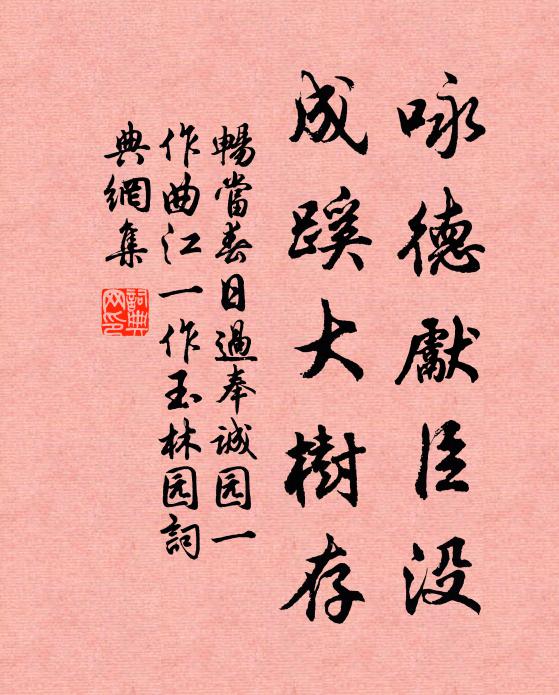 咏德獻臣没
成蹊大樹存
暢當春日過奉誠园一
作曲江一作玉林园詞
典網集
詞典网印